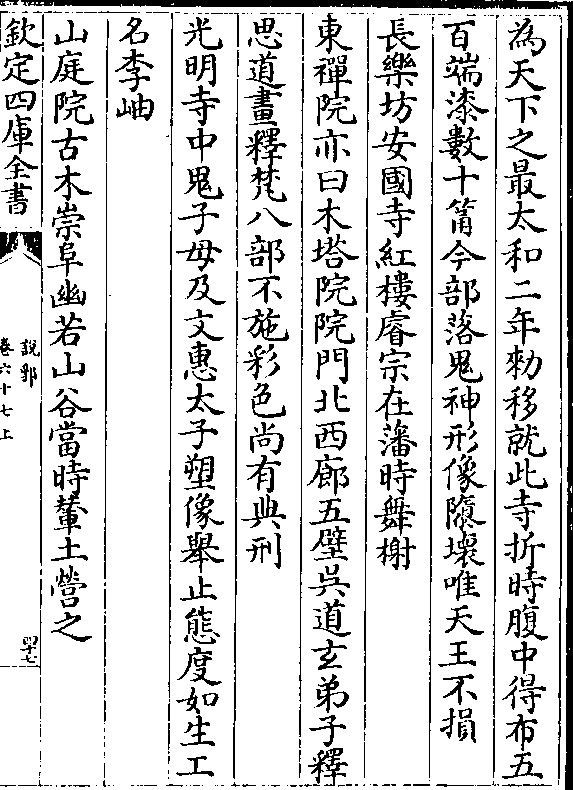 為天下之最太和二年勑移就此寺折時腹中得布五
百端漆數十筩今部落鬼神形像隳壞唯天王不損
長樂坊安國寺紅樓睿宗在藩時舞榭
東禪院亦曰木塔院院門北西廊五壁吳道玄弟子釋
思道畫釋梵八部不施彩色尚有典刑
光明寺中鬼子母及文惠太子塑像舉止態度如生工
名李岫
山庭院古木崇阜幽若山谷當時輦土營之
欽定四庫全書
說郛
卷六十七上
四十七